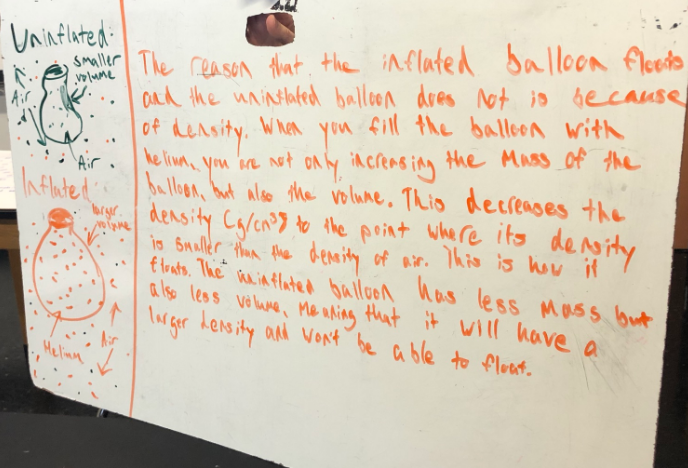 Uninflated
smaller
volume
Air
Air
Inflated
larger
volume
Helium
Air
The reason that the inflated balloon floats
and the uninflated balloon does not is because
of density. When you fill the balloon with
helium, you are not only increasing the Mass of the
balloon, but also the volume. This decreases the
density (g/cm³) to the point where its density
is smaller than the density of air. This is how it
floats. The uninflated balloon has less mass but
also less volume, meaning that it will have a
larger density and won't be able to float.